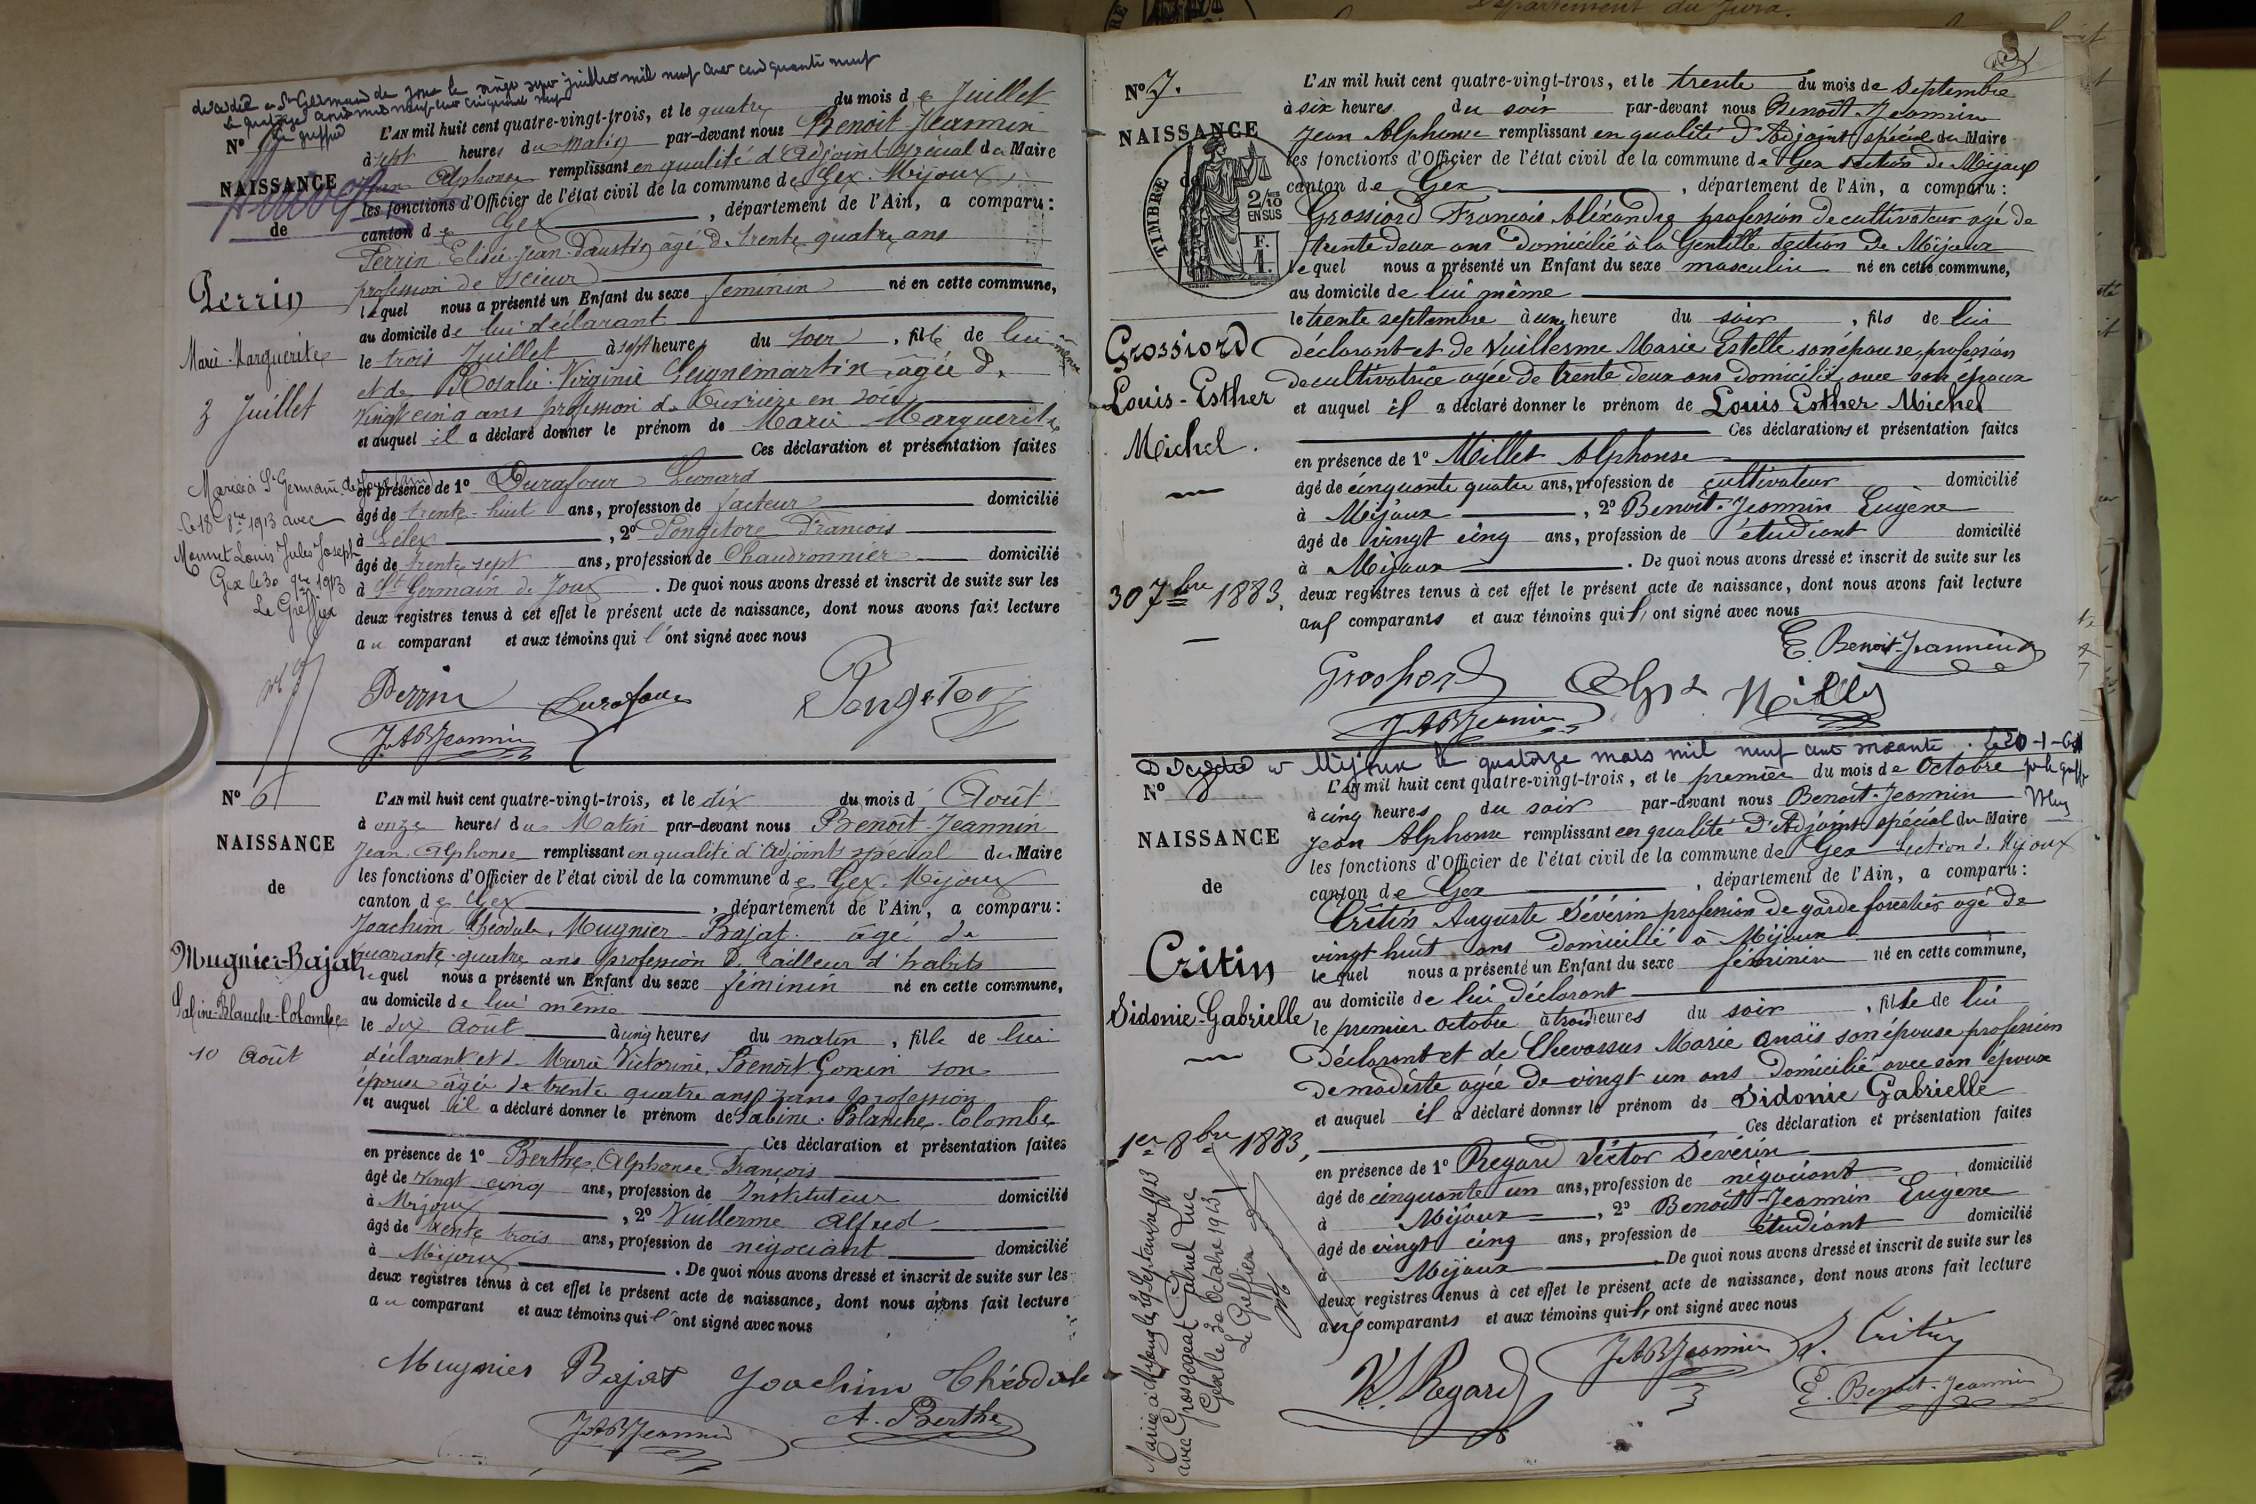 décédée à St Germain de Joux le vingt sept juillet mil neuf cent cinquante neuf
Le greffier
N°
NAISSANCE
de
Perrin
Marie-Marguerite
3 Juillet
Mariée à St Germain-de-Joux (Ain)
le 18 8bre 1913 avec
Monnet Louis Jules Joseph
Gex le 30 9bre 1913
Le Greffier
L'AN mil huit cent quatre-vingt-trois, et le quatre du mois de Juillet
à sept heures du matin par-devant nous Benoit-Jeannin
Jean Alphonse remplissant en qualité d'Adjoint spécial du Maire
les fonctions d'Officier de l'état civil de la commune de Gex-Mijoux,
canton de Gex, département de l'Ain, a comparu:
Perrin Elisée Jean Faustin âgé de trente quatre ans
profession de Scieur
lequel nous a présenté un Enfant du sexe feminin né en cette commune,
au domicile de lui déclarant
le trois Juillet à sept heures du soir, fille de lui même
et de Rosalie Virginie Seignemartin âgée de
vingt cinq ans profession de Ouvrière en soie
et auquel il a déclaré donner le prénom de Marie Marguerite
Ces déclaration et présentation faites
en présence de 1° Durafour Léonard
âgé de trente-huit ans, profession de facteur domicilié
à Lélex, 2° Pongitore François
âgé de trente sept ans, profession de Chaudronnier domicilié
à St Germain de Joux. De quoi nous avons dressé et inscrit de suite sur les
deux registres tenus à cet effet le présent acte de naissance, dont nous avons fait lecture
au comparant et aux témoins qui l'ont signé avec nous
Perrin Durafour Pongitore
J.A.B.Jeannin
N° 6
NAISSANCE
de
Mugnier-Bajat
Sabine-Blanche-Colombe
10 Août
L'AN mil huit cent quatre-vingt-trois, et le dix du mois d'Août
à onze heures du Matin par-devant nous Benoît-Jeannin
Jean-Alphonse remplissant en qualité d'adjoint spécial du Maire
les fonctions d'Officier de l'état civil de la commune de Gex-Mijoux
canton de Gex, département de l'Ain, a comparu:
Joachim Théodule, Mugnier-Bajat âgé de
quarante-quatre ans profession de tailleur d'habits
lequel nous a présenté un Enfant du sexe féminin né en cette commune,
au domicile de lui même
le dix Aout à cinq heures du matin, fille de lui
déclarant et de Marie Victorine, Benoît Gonin son
épouse âgée de trente quatre ans sans profession
et auquel il a déclaré donner le prénom de Sabine-Blanche-Colombe
Ces déclaration et présentation faites
en présence de 1° Berthet Alphonse François
âgé de vingt cinq ans, profession de Instituteur domicilié
à Mijoux, 2° Vuillerme Alfred
âgé de trente trois ans, profession de négociant domicilié
à Mijoux. De quoi nous avons dressé et inscrit de suite sur les
deux registres tenus à cet effet le présent acte de naissance, dont nous avons fait lecture
au comparant et aux témoins qui l'ont signé avec nous
Mugnier Bajat Joachim Théodule
J.A.B.Jeannin A. Berthet
N° 7.
NAISSANCE
de
TIMBRE
2/10 EN SUS
F. 1.
Grossiord
Louis-Esther
Michel.
30 7bre 1883.
L'AN mil huit cent quatre-vingt-trois, et le trente du mois de Septembre
à six heures du soir par-devant nous Benoît-Jeannin
Jean Alphonse remplissant en qualité d'Adjoint spécial du Maire
les fonctions d'Officier de l'état civil de la commune de Gex section de Mijoux
canton de Gex, département de l'Ain, a comparu:
Grossiord François Aléxandre profession de cultivateur agé de
trente deux ans domicilié à la Gentille section de Mijoux
lequel nous a présenté un Enfant du sexe masculin né en cette commune,
au domicile de lui même
le trente septembre à une heure du soir, fils de lui
déclarant et de Vuillerme Marie Estelle son épouse profession
de cultivatrice agée de trente deux ans domicilié avec son époux
et auquel il a déclaré donner le prénom de Louis Esther Michel
Ces déclarations et présentation faites
en présence de 1° Millet Alphonse
âgé de cinquante quatre ans, profession de cultivateur domicilié
à Mijoux, 2° Benoît-Jeannin Eugène
âgé de vingt cinq ans, profession de étudiant domicilié
à Mijoux. De quoi nous avons dressé et inscrit de suite sur les
deux registres tenus à cet effet le présent acte de naissance, dont nous avons fait lecture
aux comparants et aux témoins qui l'ont signé avec nous
E. Benoit-Jeannin
Grossiord Alph Millet
J.A.B.Jeannin
Décédée à Mijoux le quatorze mars mil neuf cent soixante.
N° 8
NAISSANCE
de
Critin
Sidonie-Gabrielle
1er 8bre 1883,
Mariée à Mijoux le 29 Janvier 1913
avec Grosgogeat Gabriel Luc
Gex le 30 Octobre 1913,
Le Greffier
L'AN mil huit cent quatre-vingt-trois, et le premier du mois de Octobre
à cinq heures du soir par-devant nous Benoît-Jeannin
Jean Alphonse remplissant en qualité d'Adjoint spécial du Maire
les fonctions d'Officier de l'état civil de la commune de Gex section de Mijoux
canton de Gex, département de l'Ain, a comparu:
Critin Auguste Sévérin profession de garde forestier agé de
vingt huit ans domicilié à Mijoux
lequel nous a présenté un Enfant du sexe féminin né en cette commune,
au domicile de lui déclarant
le premier octobre à trois heures du soir, fille de lui
déclarant et de Chevassus Marie Anaïs son épouse profession
de modiste agée de vingt un ans domicilié avec son époux
et auquel il a déclaré donner le prénom de Sidonie Gabrielle
Ces déclaration et présentation faites
en présence de 1° Regard Victor Sévérin
âgé de cinquante un ans, profession de négociant, domicilié
à Mijoux, 2° Benoît-Jeannin Eugène
âgé de vingt cinq ans, profession de étudiant domicilié
à Mijoux. De quoi nous avons dressé et inscrit de suite sur les
deux registres tenus à cet effet le présent acte de naissance, dont nous avons fait lecture
aux comparants et aux témoins qui l'ont signé avec nous
V.S. Regard J.A.B.Jeannin S. Critin
E. Benoit-Jeannin